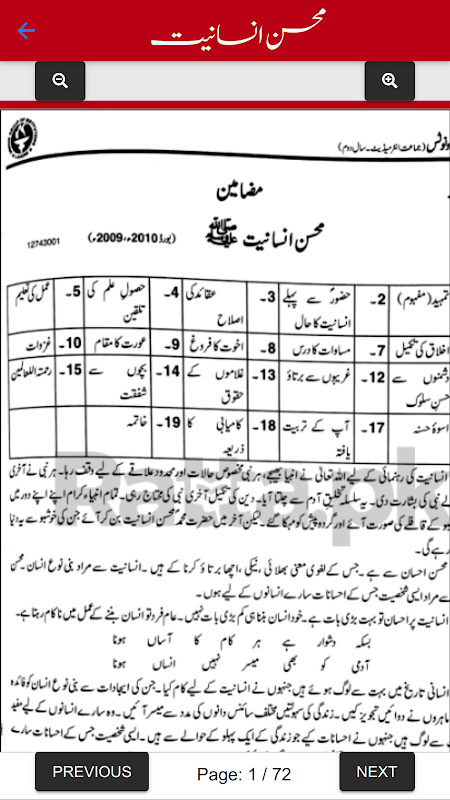 محسن انسانیت
نوٹس (جماعت انٹرمیڈیٹ۔ سال دوم)
مضامین
محسن انسانیت ﷺ (بورڈ 2010ء، 2009ء)
12743001
تمہید (مفہوم) 2۔ حضورؐ سے پہلے انسانیت کا حال 3۔ عقائد کی اصلاح 4۔ حصول علم کی تلقین 5۔ عمل کی تعلیم
اخلاق کی تکمیل 7۔ مساوات کا درس 8۔ اخوت کا فروغ 9۔ عورت کا مقام 10۔ غزوات
دشمنوں سے حسن سلوک 12۔ غریبوں سے برتاؤ 13۔ غلاموں کے حقوق 14۔ بچوں سے شفقت 15۔ رحمۃ اللعالمین
اسوۂ حسنہ 17۔ آپ کے تربیت یافتہ 18۔ کامیابی کا ذریعہ 19۔ خاتمہ
انسانیت کی رہنمائی کے لیے اللہ تعالیٰ نے انبیا بھیجے، ہر نبی مخصوص حالات اور محدود علاقے کے لیے وقف رہا۔ ہر نبی نے آخری
نبی کی بشارت دی۔ یہ سلسلہ تخلیق آدم سے چلتا آیا۔ دین کی تکمیل آخری نبی کی محتاج رہی۔ تمام انبیاء کرام اپنے اپنے دور میں
کے قافلے کی صورت آئے اور گرد و پیش کو مہکا گئے۔ لیکن آخر میں حضرت محمدؐ محسن انسانیت بن کر آئے جن کی خوشبو سے یہ دنیا
رہے گی۔
محسن احسان سے ہے۔ جس کے لغوی معنی بھلائی، نیکی، اچھا برتاؤ کرنا کے ہیں۔ انسانیت سے مراد بنی نوع انسان۔ محسن
سے مراد ایسی شخصیت جس کے احسانات سارے انسانوں کے لیے ہوں۔
انسانیت پر احسان تو بہت بڑی بات ہے۔ خود انسان بننا ہی کم بڑی بات نہیں۔ عام فرد تو انسان بننے کے عمل میں ناکام رہتا ہے۔
بسکہ دشوار ہے ہر کام کا آساں ہونا
آدمی کو بھی میسر نہیں انساں ہونا
انسانی تاریخ میں بہت سے لوگ ہوئے ہیں جنہوں نے انسانیت کے لیے کام کیا۔ جن کی ایجادات سے بنی نوع انسان کو فائدہ
ماہروں نے دوائیں تجویز کیں۔ زندگی کی سہولتیں مختلف سائنس دانوں کی مدد سے میسر آئیں۔ وہ سارے انسانوں کے لیے مفید
لوگ ہیں جنہوں نے احسانات کیے جو زندگی کے ایک پہلو کے حوالے سے ہیں۔ ایسی شخصیت جس کے احسانات سارے
PREVIOUS Page: 1 / 72 NEXT